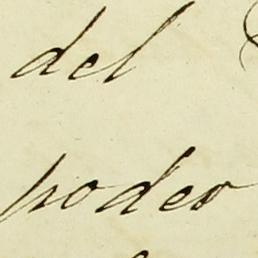 del
poder